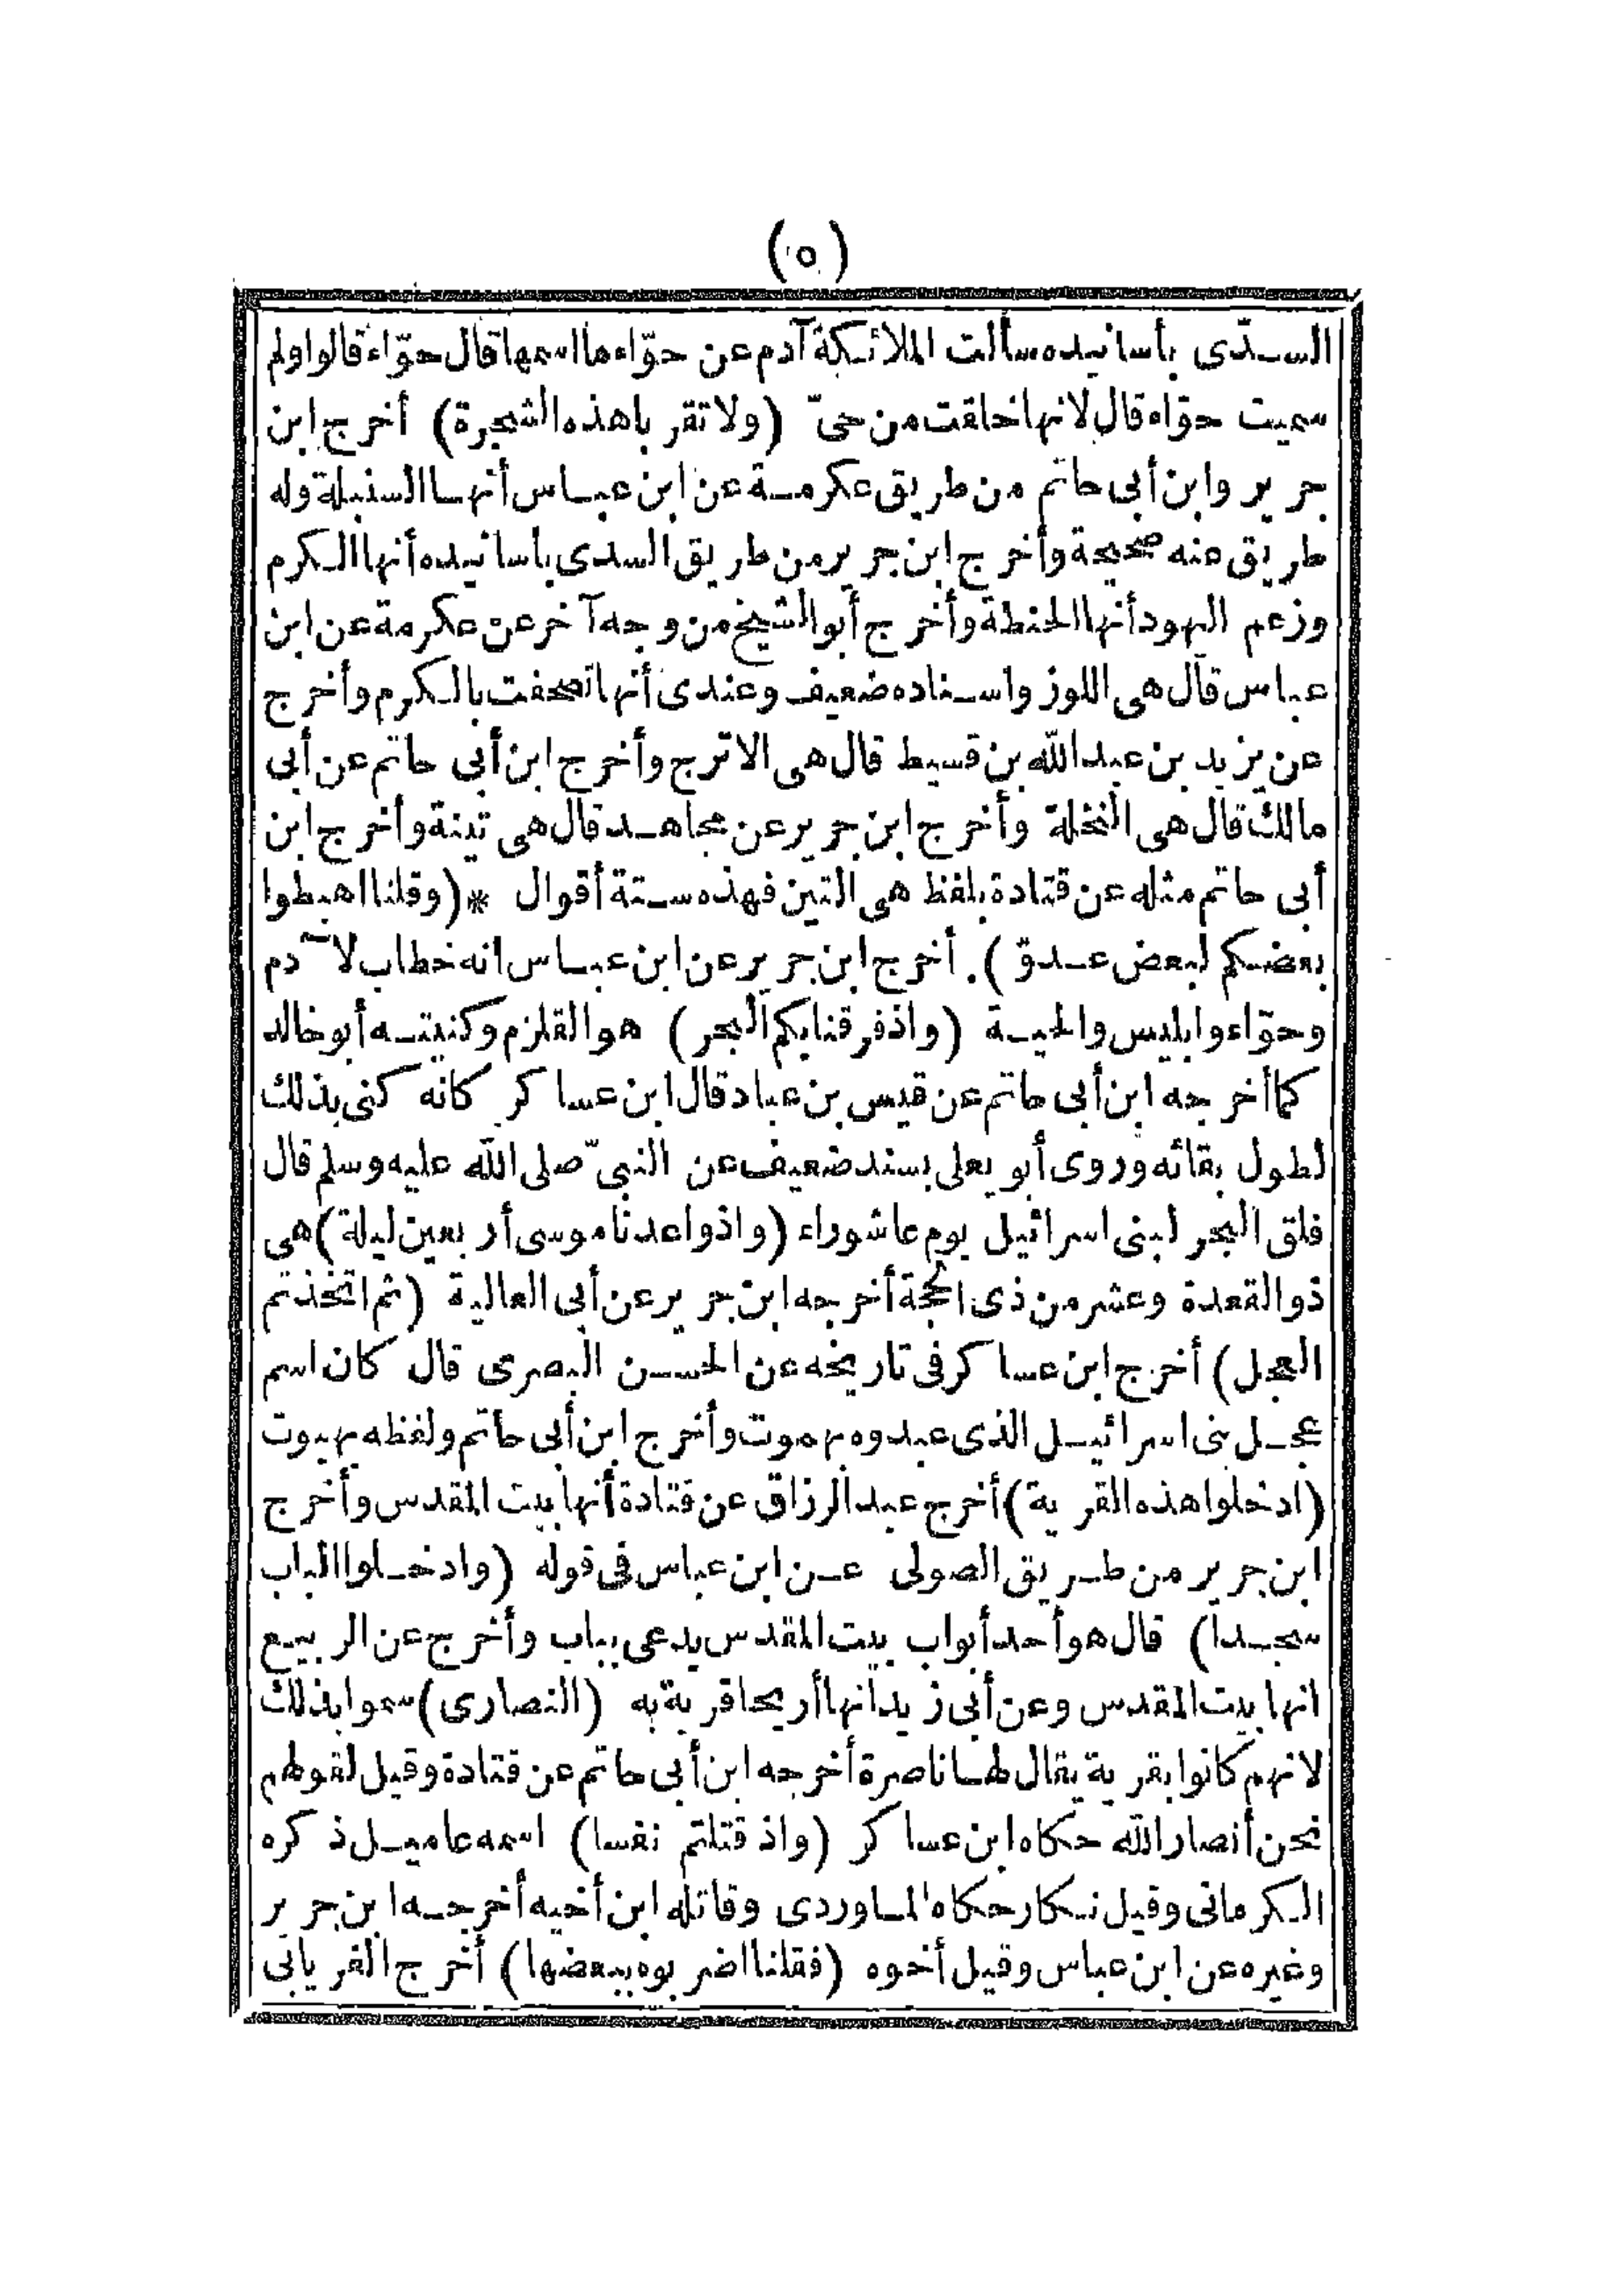 (٥)
السدّى بأسانيده سألت الملائكة آدم عن حوّاء ما اسمها قال حوّاء قالوا ولم
سميت حوّاء قال لانها خلقت من حىّ (ولا تقربا هذه الشجرة) أخرج ابن
جرير وابن أبى حاتم من طريق عكرمة عن ابن عباس أنها السنبلة وله
طريق عنه صحيحة وأخرج ابن جرير من طريق السدى بأسانيده أنها الكرم
وزعم اليهود أنها الحنطة وأخرج أبو الشيخ من وجه آخر عن عكرمة عن ابن
عباس قال هى اللوز واسناده ضعيف وعندى أنها تصحفت بالكرم وأخرج
عن يزيد بن عبد الله بن قسيط قال هى الاترج وأخرج ابن أبى حاتم عن أبى
مالك قال هى النخلة وأخرج ابن جرير عن مجاهد قال هى تينة وأخرج ابن
أبى حاتم مثله عن قتادة بلفظ هى التين فهذه ستة أقوال * (وقلنا اهبطوا
بعضكم لبعض عدوّ). أخرج ابن جرير عن ابن عباس انه خطاب لآدم
وحوّاء وابليس والحية (واذ فرقنا بكم البحر) هو القلزم وكنيته أبو خالد
كما أخرجه ابن أبى حاتم عن قيس بن عباد قال ابن عساكر كانه كنى بذلك
لطول بقائه وروى أبو يعلى بسند ضعيف عن النبىّ صلى الله عليه وسلم قال
فلق البحر لبنى اسرائيل يوم عاشوراء (واذ واعدنا موسى أربعين ليلة) هى
ذو القعدة وعشر من ذى الحجة أخرجه ابن جرير عن أبى العالية (ثم اتخذتم
العجل) أخرج ابن عساكر فى تاريخه عن الحسن البصرى قال كان اسم
عجل بنى اسرائيل الذى عبدوه بهموت وأخرج ابن أبى حاتم ولفظه يهبوت
(ادخلوا هذه القرية) أخرج عبد الرزاق عن قتادة أنها بيت المقدس وأخرج
ابن جرير من طريق الصولى عن ابن عباس فى قوله (وادخلوا الباب
سجدا) قال هو أحد أبواب بيت المقدس يدعى بباب وأخرج عن الربيع
انها بيت المقدس وعن أبى زيد أنها أريحا قرية به (النصارى) سموا بذلك
لانهم كانوا بقرية يقال لها ناصرة أخرجه ابن أبى حاتم عن قتادة وقيل لقولهم
نحن أنصار الله حكاه ابن عساكر (واذ قتلتم نفسا) اسمه عاميل ذكره
الكرمانى وقيل نكار حكاه الماوردى وقاتله ابن أخيه أخرجه ابن جرير
وغيره عن ابن عباس وقيل أخوه (فقلنا اضربوه ببعضها) أخرج الفريابى